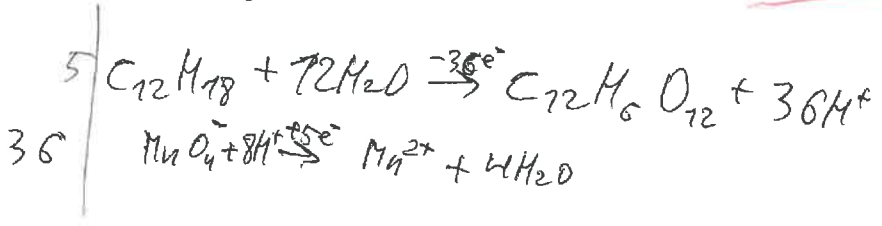 5 | C₁₂H₁₈ + 12H₂O →(-36e⁻) C₁₂H₆O₁₂ + 36H⁺
36 | MnO₄⁻ + 8H⁺ →(+5e⁻) Mn²⁺ + 4H₂O